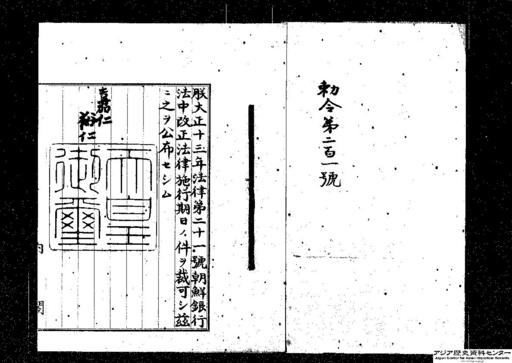 勅令第二百一號
朕大正十三年法律第二十一號朝鮮銀行
法中改正法律施行期日ノ件ヲ裁可シ茲
ニ之ヲ公布セシム
嘉仁
裕仁
天皇
御璽
内閣
アジア歴史資料センター
Japan Center for Asian Historical Records